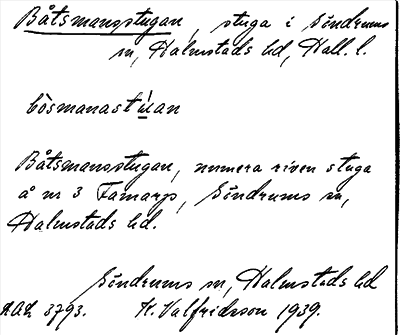 Båtsmansstugan, stuga i Söndrums
sn, Halmstads hd, Hall. l.
bòsmanastú̲an
Båtsmansstugan, numera riven stuga
å nr 3 Tamarp, Söndrums sn,
Halmstads hd.
Söndrums sn, Halmstads hd
3793. H. Valfridsson 1939.